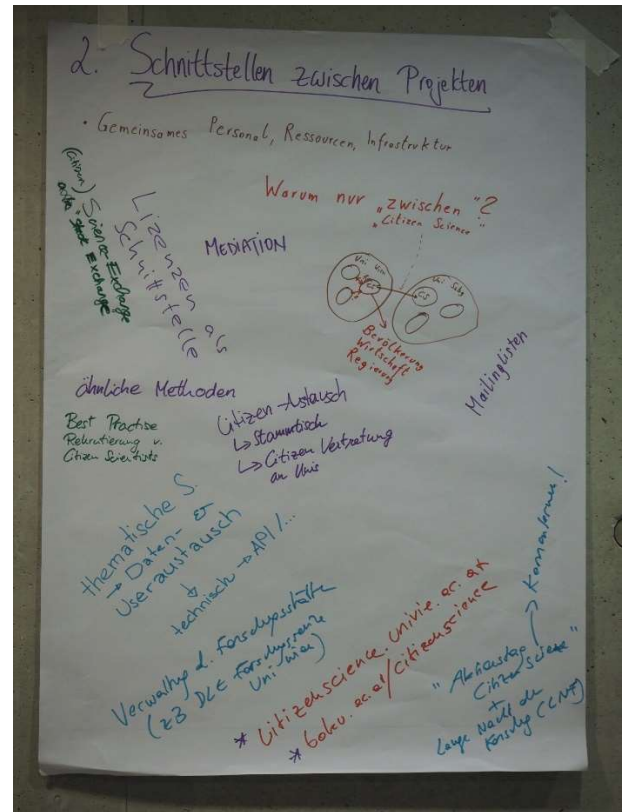 2. Schnittstellen zwischen Projekten
• Gemeinsames Personal, Ressourcen, Infrastruktur
(Citizen) Science Exchange
Stack Exchange
Lizenzen als
Schnittstelle
MEDIATION
Warum nur „zwischen"?
„Citizen Science"
Uni Wien
CS
Uni Sbg
CS
Bevölkerung
Wirtschaft
Regierung
Mailinglisten
ähnliche Methoden
Best Practise
Rekrutierung v.
Citizen Scientists
Citizen-Austausch
↳ Stammtisch
↳ Citizen Vertretung
an Unis
thematische S.
→ Daten- &
Useraustausch
↳ technisch → API/...
Verwaltung d. Forschungsstätte
(zB DLE Forschungsservice
Uni Wien)
* Citizenscience.univie.ac.at
* boku.ac.at/citizenscience
Kennenlernen!
"Aktionstag
Citizen Science"
+
Lange Nacht der
Forschung (LNF)